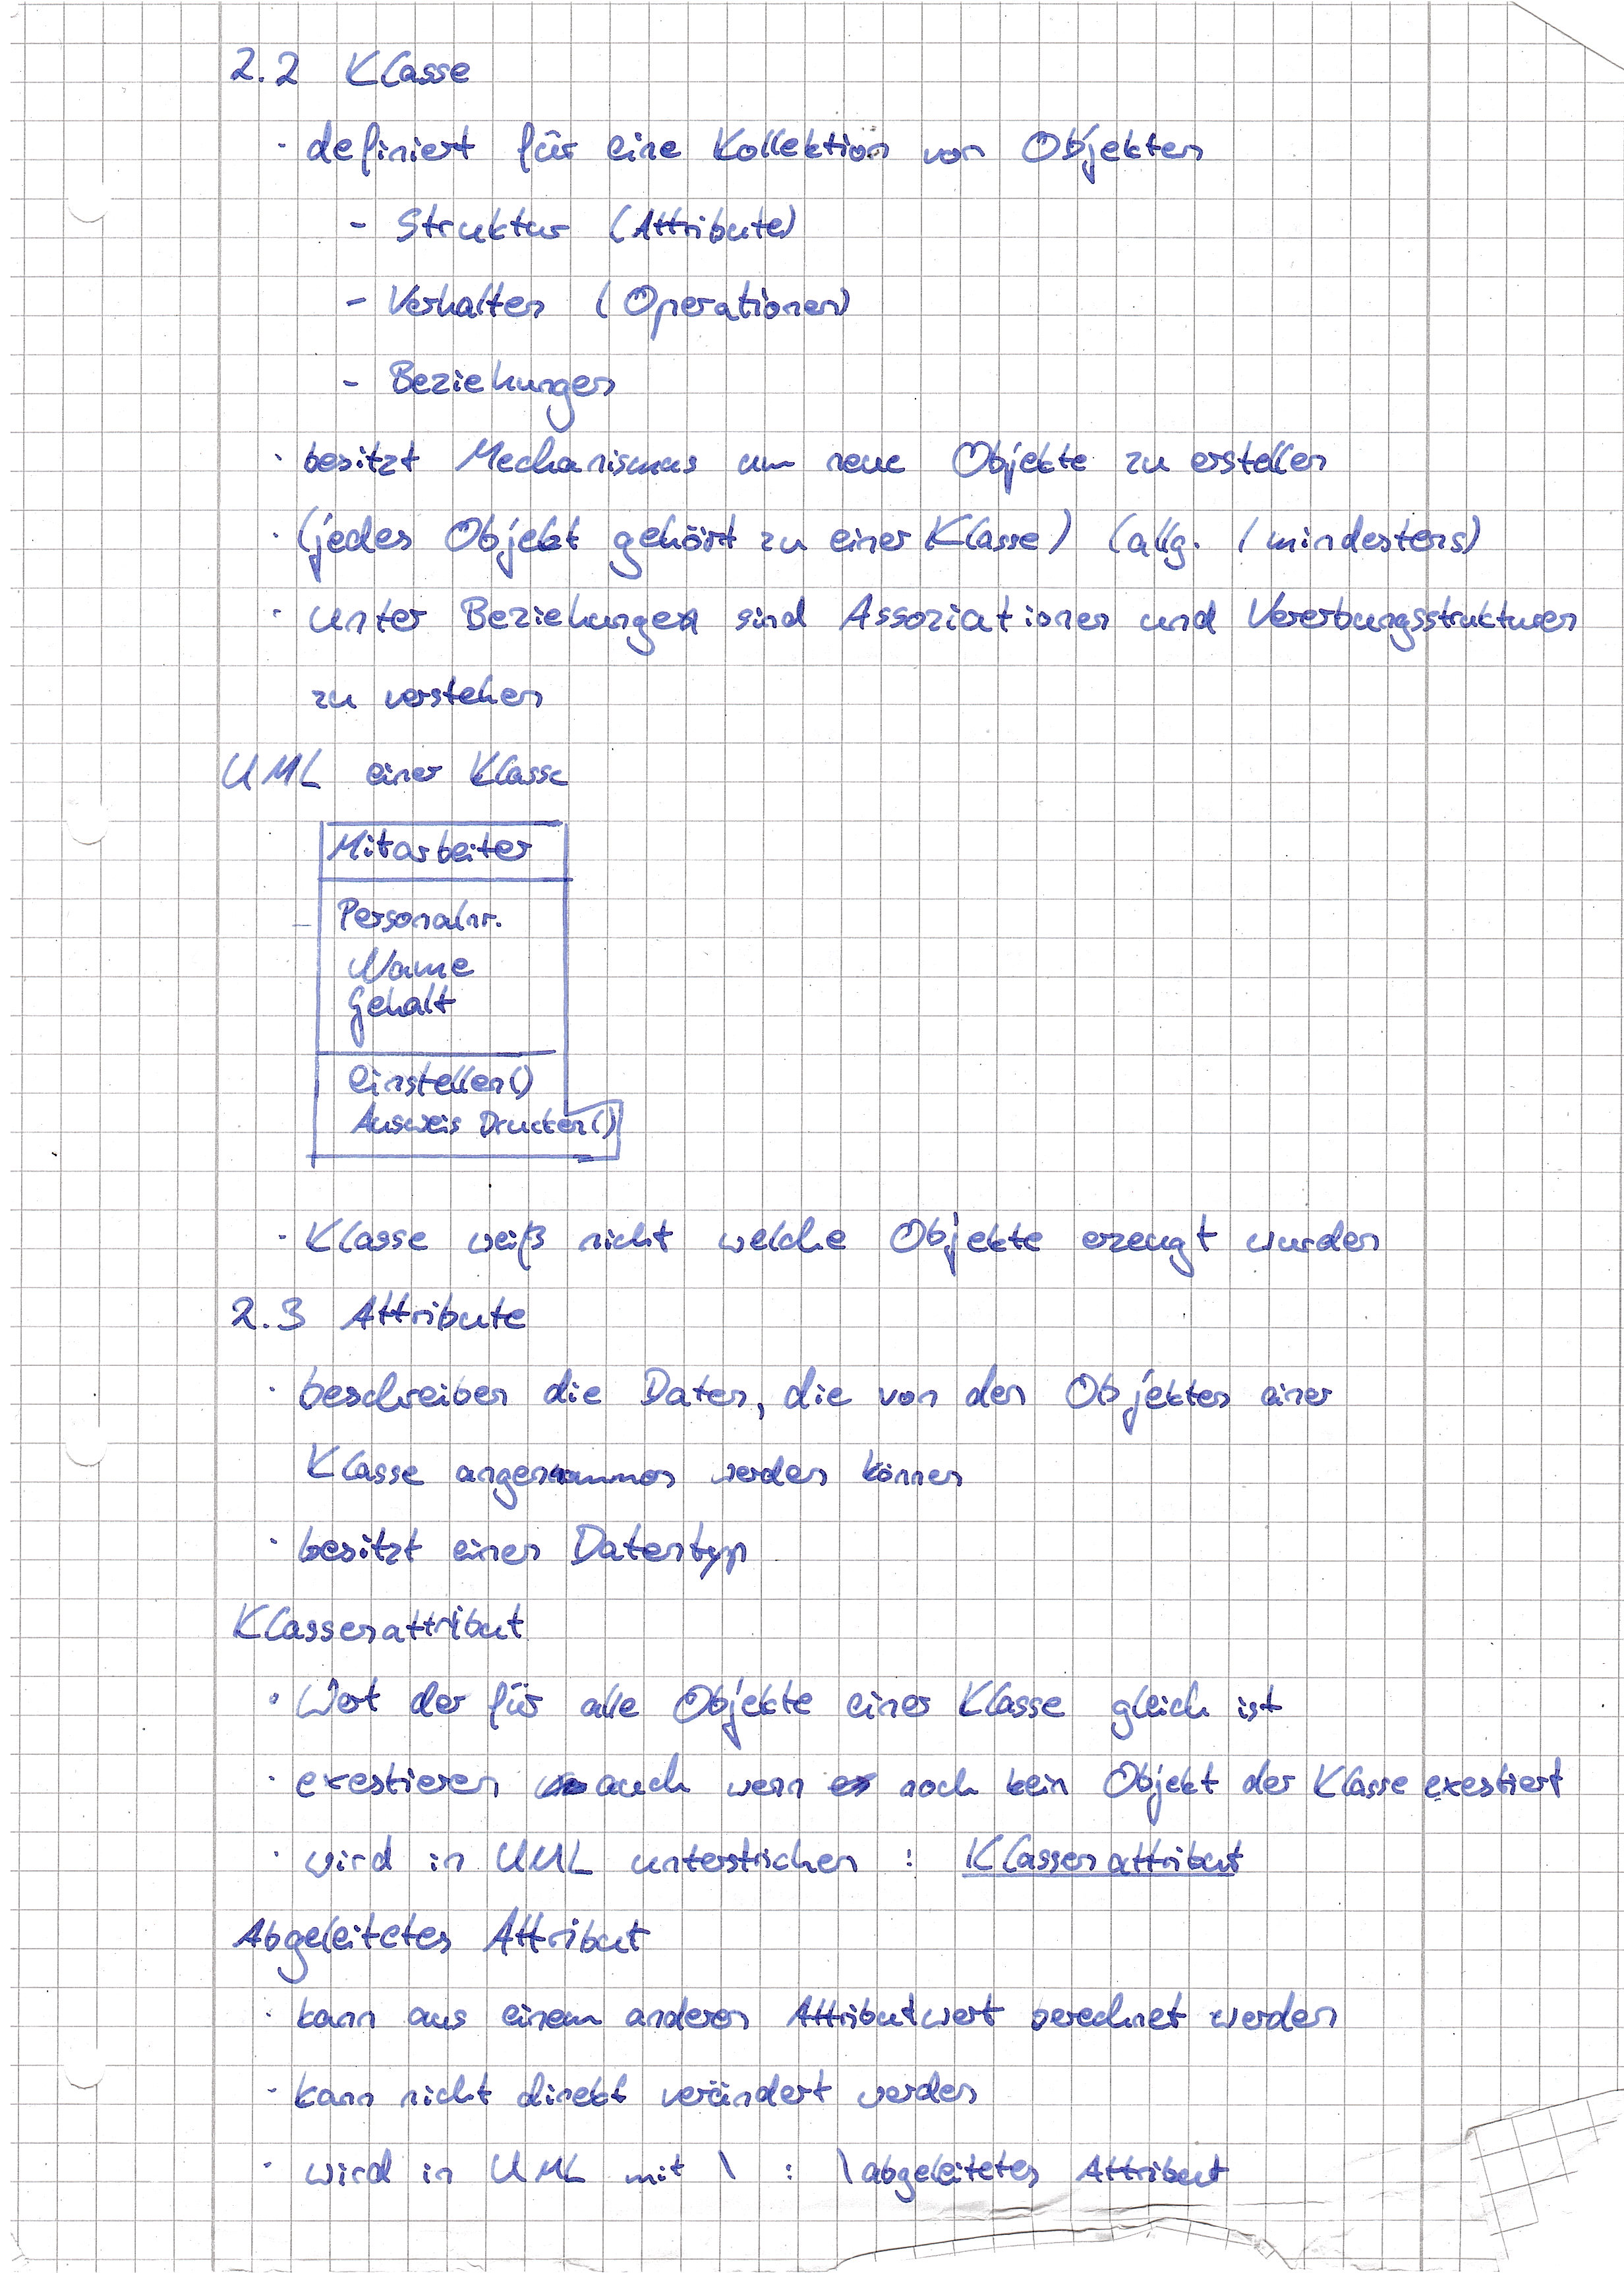 2.2 Klasse
· definiert für eine Kollektion von Objekten
- Struktur (Attribute)
- Verhalten (Operationen)
- Beziehungen
· besitzt Mechanismus um neue Objekte zu erstellen
· (jedes Objekt gehört zu einer Klasse) (allg. / mindestens)
· unter Beziehungen sind Assoziationen und Vererbungsstrukturen
zu verstehen
UML einer Klasse
Mitarbeiter
Personalnr.
Name
Gehalt
Einstellen()
Ausweis Drucken()
· Klasse weiß nicht welche Objekte erzeugt wurden
2.3 Attribute
· beschreiben die Daten, die von den Objekten einer
Klasse angenommen werden können
· besitzt einen Datentyp
Klassenattribut
· Wert der für alle Objekte einer Klasse gleich ist
· exestieren auch wenn noch kein Objekt der Klasse exestiert
· wird in UML unterstrichen : Klassenattribut
Abgeleitetes Attribut
· kann aus einem anderen Attributwert berechnet werden
· kann nicht direkt verändert werden
· wird in UML mit \ : \abgeleitetes Attribut